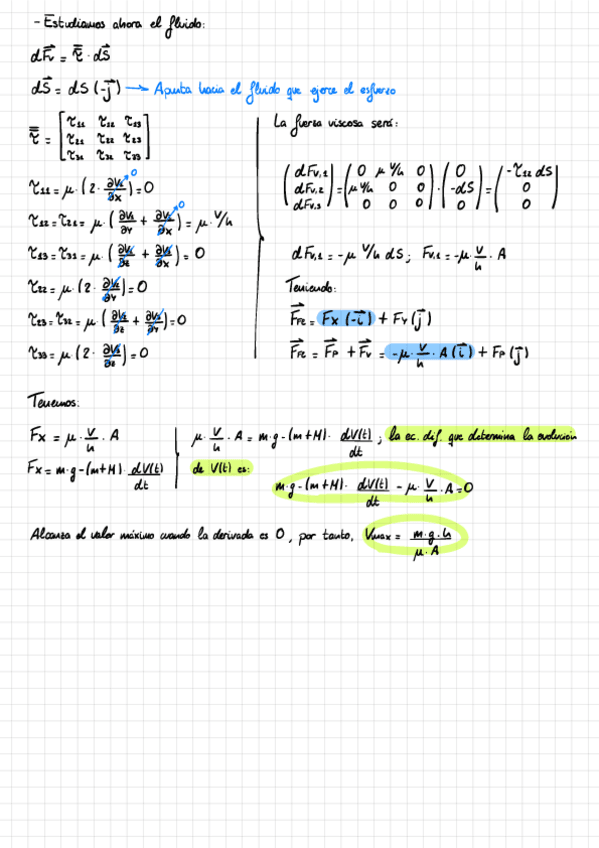 - Estudiamos ahora el fluido:
dF⃗v = τ̿ · dS⃗
dS⃗ = dS (-j⃗) → Apunta hacia el fluido que ejerce el esfuerzo
τ̿ = [τ11 τ12 τ13
τ21 τ22 τ23
τ31 τ32 τ33]
τ11 = μ · (2 · ∂Vx/∂x) = 0
τ12 = τ21 = μ · (∂Vx/∂y + ∂Vy/∂x) = μ · V/h
τ13 = τ31 = μ · (∂Vx/∂z + ∂Vz/∂x) = 0
τ22 = μ · (2 · ∂Vy/∂y) = 0
τ23 = τ32 = μ · (∂Vy/∂z + ∂Vz/∂y) = 0
τ33 = μ (2 · ∂Vz/∂z) = 0
La fuerza viscosa será:
(dFv,1) = (0 μ V/h 0) · (0) = (-τ12 dS)
(dFv,2) (μ V/h 0 0) (-dS) (0)
(dFv,3) (0 0 0) (0) (0)
dFv,1 = -μ V/h dS ; Fv,1 = -μ · V/h · A
Teniendo:
F⃗FE = Fx (-i⃗) + Fy (j⃗)
F⃗FE = F⃗P + F⃗V = -μ · V/h · A (i⃗) + FP (j⃗)
Tenemos:
Fx = μ · V/h · A
Fx = m·g - (m+M) · dV(t)/dt
μ · V/h · A = m·g - (m+M) · dV(t)/dt ; la ec. dif. que determina la evolucion
de V(t) es:
m·g - (m+M) · dV(t)/dt - μ · V/h · A = 0
Alcanza el valor máximo cuando la derivada es 0, por tanto, Vmax = m·g·h / μ·A